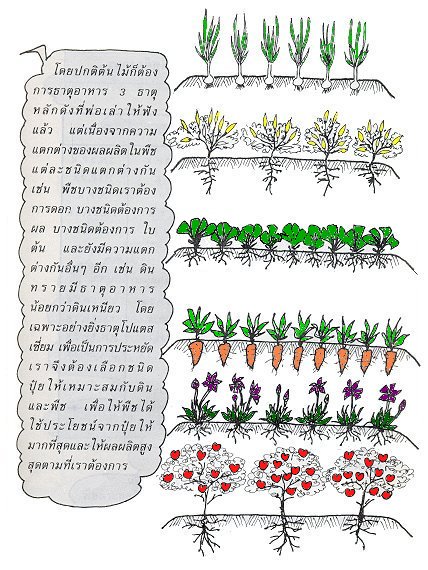 โดยปกติต้นไม้ก็ต้อง
การธาตุอาหาร 3 ธาตุ
หลักดังที่พ่อเล่าให้ฟัง
แล้ว แต่เนื่องจากความ
แตกต่างของผลผลิตในพืช
แต่ละชนิดแตกต่างกัน
เช่น พืชบางชนิดเราต้อง
การดอก บางชนิดต้องการ
ผล บางชนิดต้องการ ใบ
ต้น และยังมีความแตก
ต่างกันอื่นๆ อีก เช่น ดิน
ทรายมีธาตุอาหาร
น้อยกว่าดินเหนียว โดย
เฉพาะอย่างยิ่งธาตุโปแตส
เซี่ยม เพื่อเป็นการประหยัด
เราจึงต้องเลือกชนิด
ปุ๋ยให้เหมาะสมกับดิน
และพืช เพื่อให้พืชได้
ใช้ประโยชน์จากปุ๋ยให้
มากที่สุดและให้ผลผลิตสูง
สุดตามที่เราต้องการ